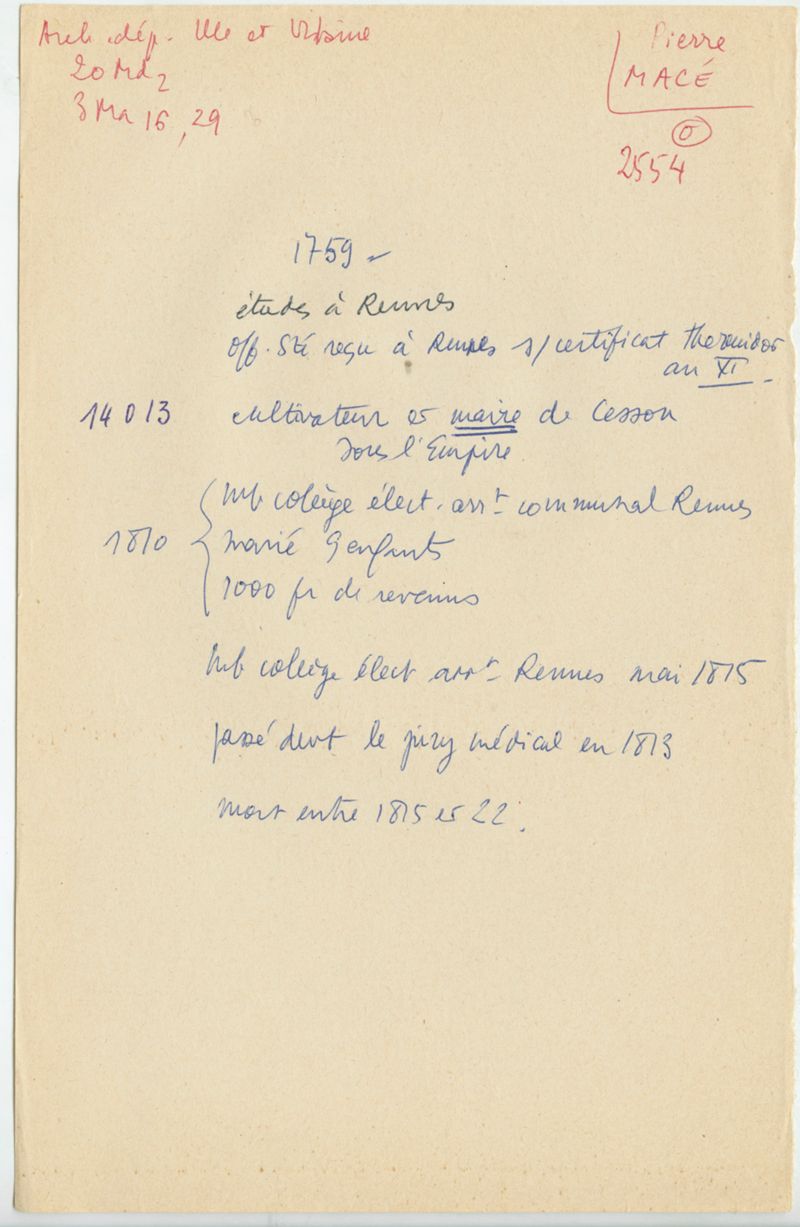 Arch. dép. Ille et Vilaine
20 Md2
3 Ma 16, 29
Pierre
MACÉ
2554
1759 -
études à Rennes
Off. Sté reçu à Rennes s/certificat thermidor
an XI.
14013 cultivateur et maire de Cesson
sous l'Empire
1810
mb collège élect. arrt communal Rennes
marié 9 enfants
1000 fr de revenus
mb collège élect arrt Rennes mai 1815
passé devt le jury médical en 1813
mort entre 1815 et 22.